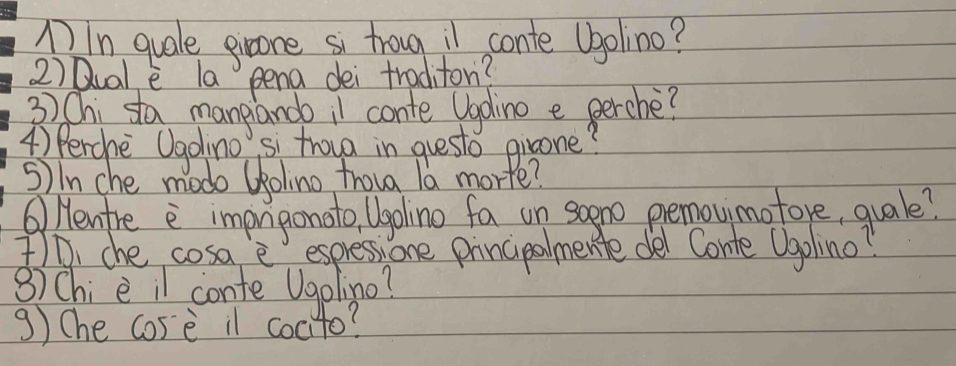 1) In quale girone si trova il conte Ugolino?
2) Qual è la pena dei traditori?
3) Chi sta mangiando il conte Ugolino e perchè?
4) Perchè Ugolino si trova in questo girone?
5) In che modo Ugolino trova la morte?
6) Mentre è imprigionato, Ugolino fa un sogno premovimotore, quale?
7) Di che cosa è espressione principalmente del Conte Ugolino?
8) Chi è il conte Ugolino?
9) Che cos'è il cocito?